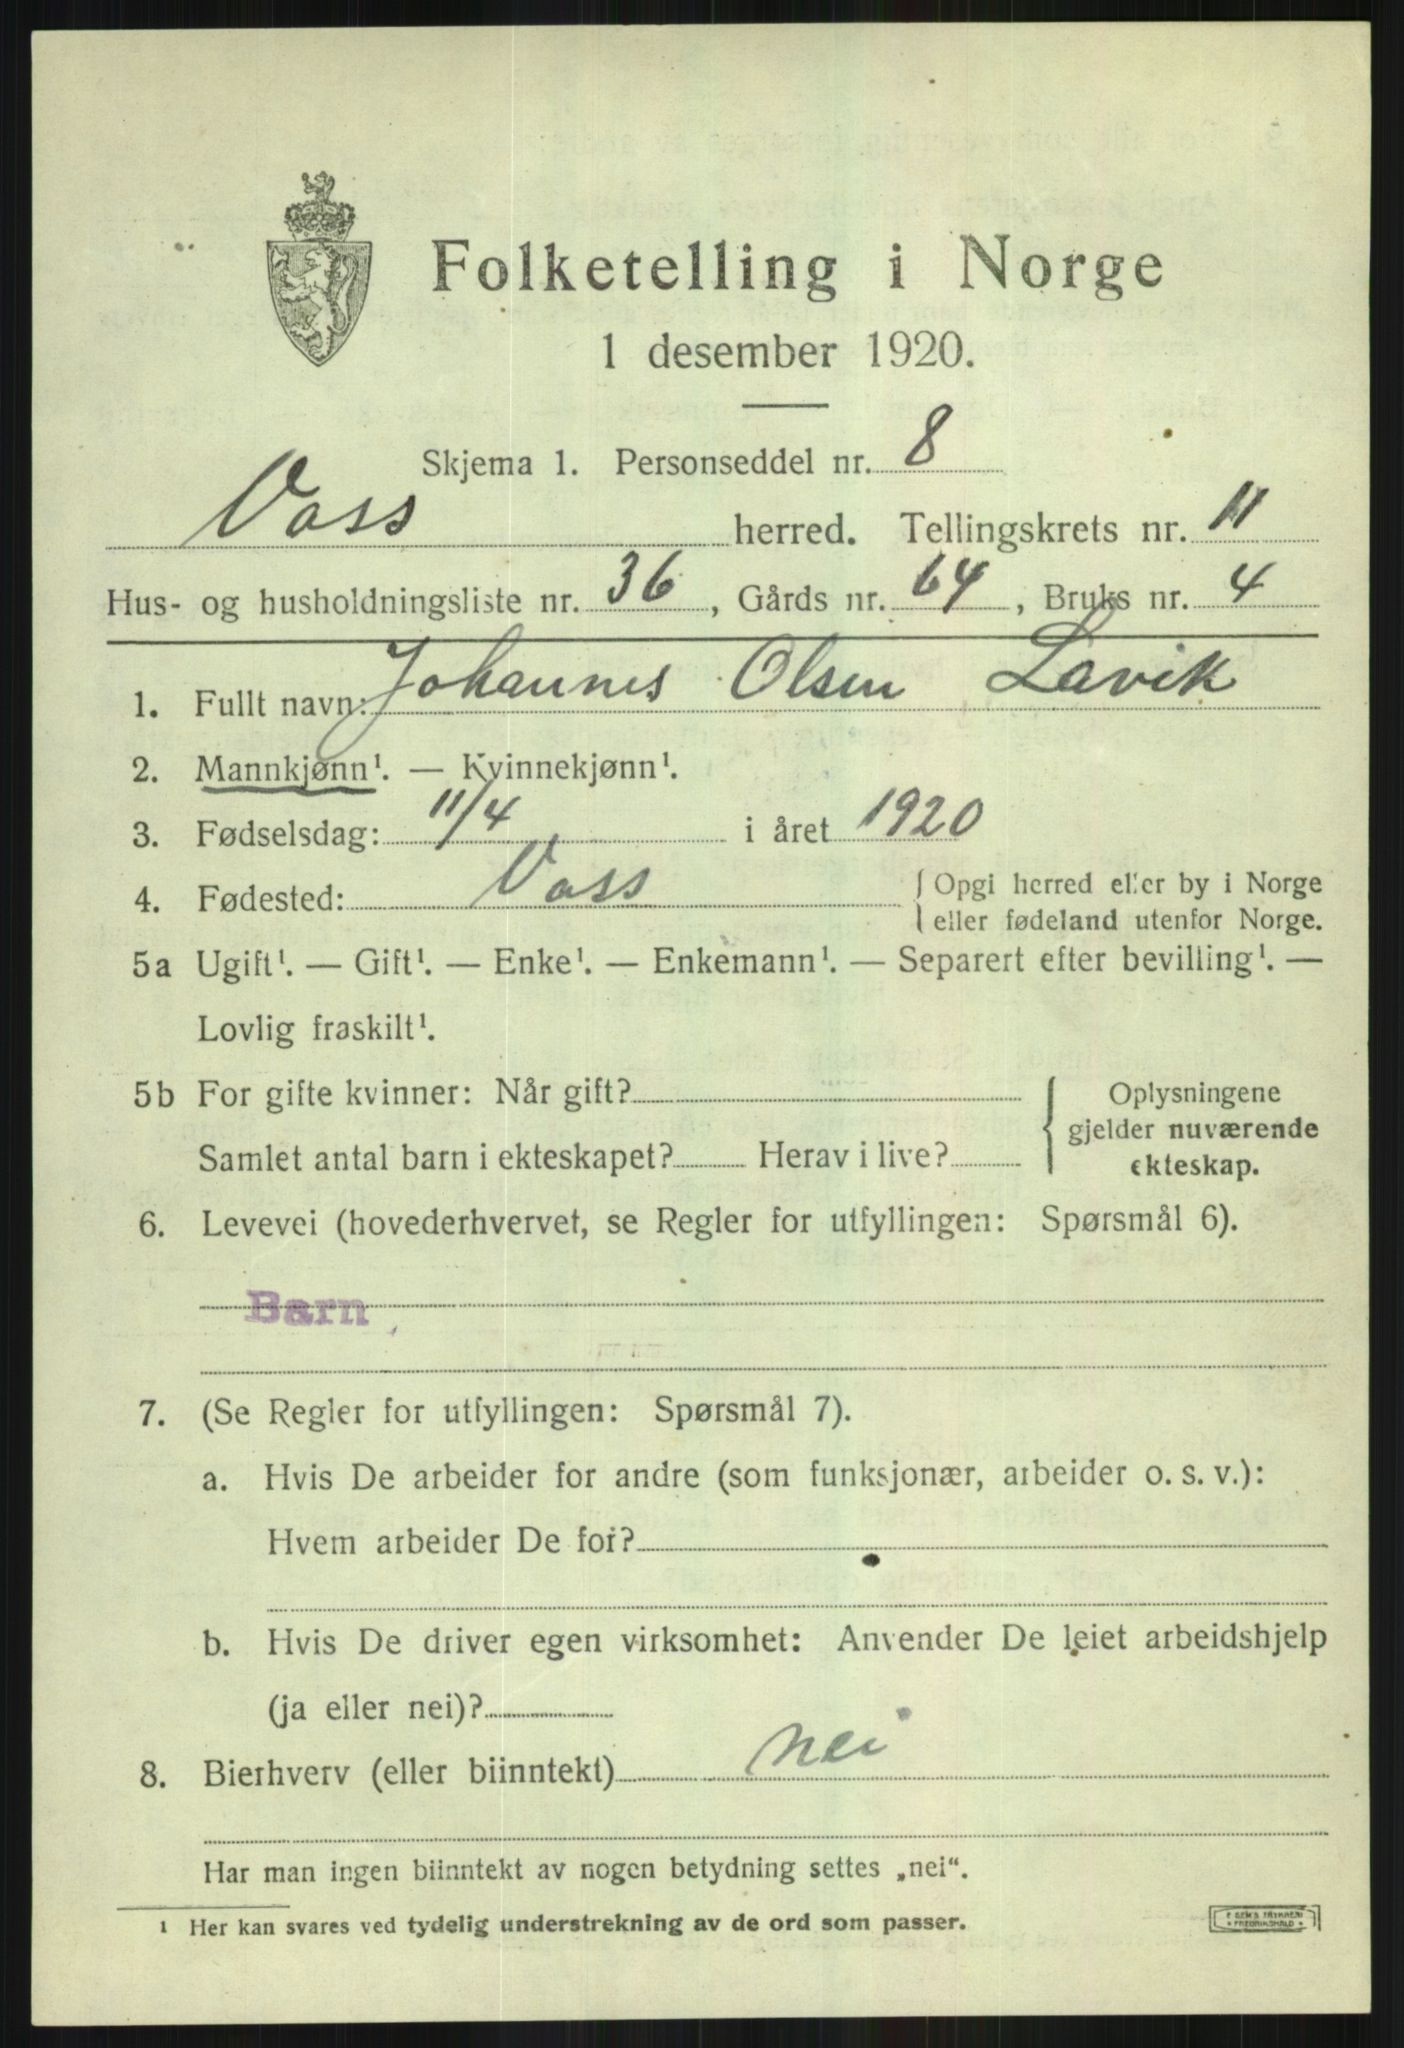 Folketelling i Norge
1 desember 1920.
Skjema 1. Personseddel nr. 8
Voss herred. Tellingskrets nr. 11
Hus- og husholdningsliste nr. 36, Gårds nr. 64, Bruks nr. 4
1. Fullt navn: Johannes Olsen Lavik
2. Mannkjønn¹. — Kvinnekjønn¹.
3. Fødselsdag: 11/4 i året 1920
4. Fødested: Voss { Opgi herred eller by i Norge
eller fødeland utenfor Norge.
5a Ugift¹. — Gift¹. — Enke¹. — Enkemann¹. — Separert efter bevilling¹. —
Lovlig fraskilt¹.
5b For gifte kvinner: Når gift? { Oplysningene
gjelder nuværende
Samlet antal barn i ekteskapet? Herav i live? ekteskap.
6. Levevei (hovederhvervet, se Regler for utfyllingen: Spørsmål 6).
Barn
7. (Se Regler for utfyllingen: Spørsmål 7).
a. Hvis De arbeider for andre (som funksjonær, arbeider o. s. v.):
Hvem arbeider De for?
b. Hvis De driver egen virksomhet: Anvender De leiet arbeidshjelp
(ja eller nei)?
8. Bierhverv (eller biinntekt) nei
Har man ingen biinntekt av nogen betydning settes „nei“.
¹ Her kan svares ved tydelig understrekning av de ord som passer.